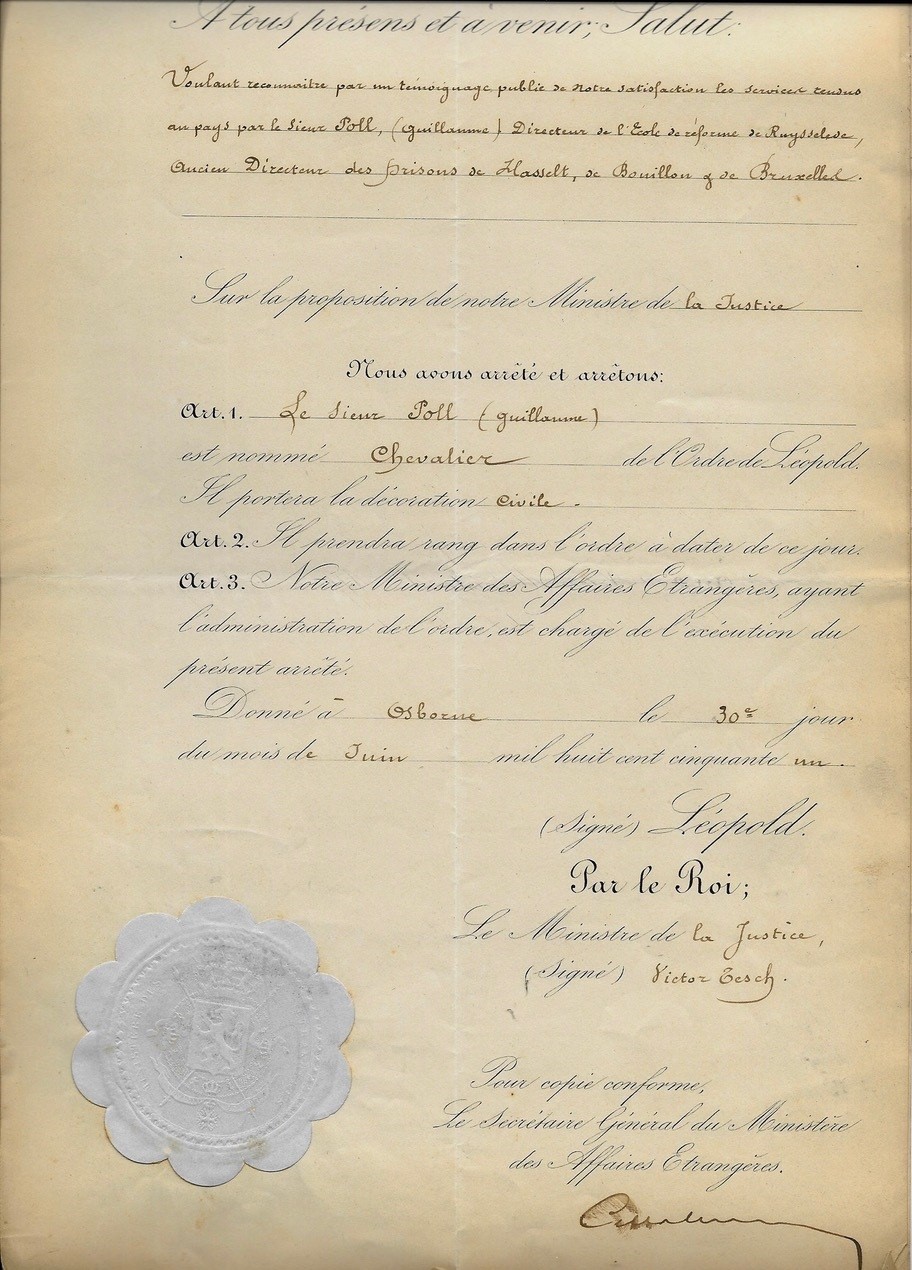 A tous présens et à venir, Salut.
Voulant reconnaitre par un témoignage public de Notre satisfaction les services rendus
au pays par le Sieur Poll, (Guillaume) Directeur de l'Ecole de réforme de Ruysselede,
Ancien Directeur des prisons de Hasselt, de Bouillon & de Bruxelles.
Sur la proposition de notre Ministre de la Justice
Nous avons arrêté et arrêtons:
Art. 1. Le Sieur Poll (Guillaume)
est nommé Chevalier de l'Ordre de Léopold.
Il portera la décoration civile.
Art. 2. Il prendra rang dans l'ordre à dater de ce jour.
Art. 3. Notre Ministre des Affaires Etrangères, ayant
l'administration de l'ordre, est chargé de l'exécution du
présent arrêté.
Donné à Osborne le 30e jour
du mois de Juin mil huit cent cinquante un.
(Signé) Léopold.
Par le Roi;
Le Ministre de la Justice,
(Signé) Victor Tesch.
Pour copie conforme,
Le Secrétaire Général du Ministère
des Affaires Etrangères.